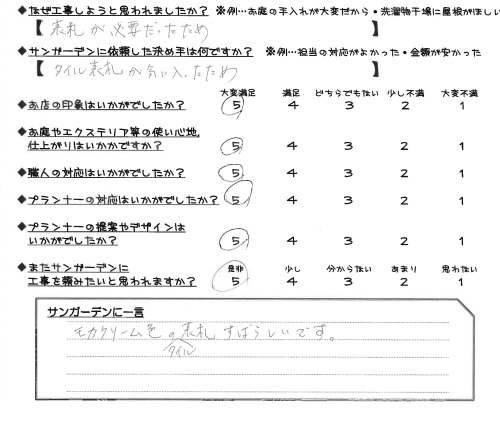 ◆なぜ工事しようと思われましたか? ※例…お庭の手入れが大変だから・洗濯物干場に屋根がほしい
【 表札が必要だったため 】
◆サンガーデンに依頼した決め手は何ですか? ※例…担当の対応がよかった・金額が安かった
【 タイル表札が気に入ったため 】
大変満足 満足 どちらでもない 少し不満 大変不満
◆お店の印象はいかがでしたか? 5 4 3 2 1
◆お庭やエクステリア等の使い心地,
仕上がりはいかかですか? 5 4 3 2 1
◆職人の対応はいかがでしたか? 5 4 3 2 1
◆プランナーの対応はいかがでしたか? 5 4 3 2 1
◆プランナーの提案やデザインは
いかがでしたか? 5 4 3 2 1
◆またサンガーデンに 是非 少し 分からない あまり 思わない
工事を頼みたいと思われますか? 5 4 3 2 1
サンガーデンに一言
モカクリーム色の表札すばらしいです。
タイル